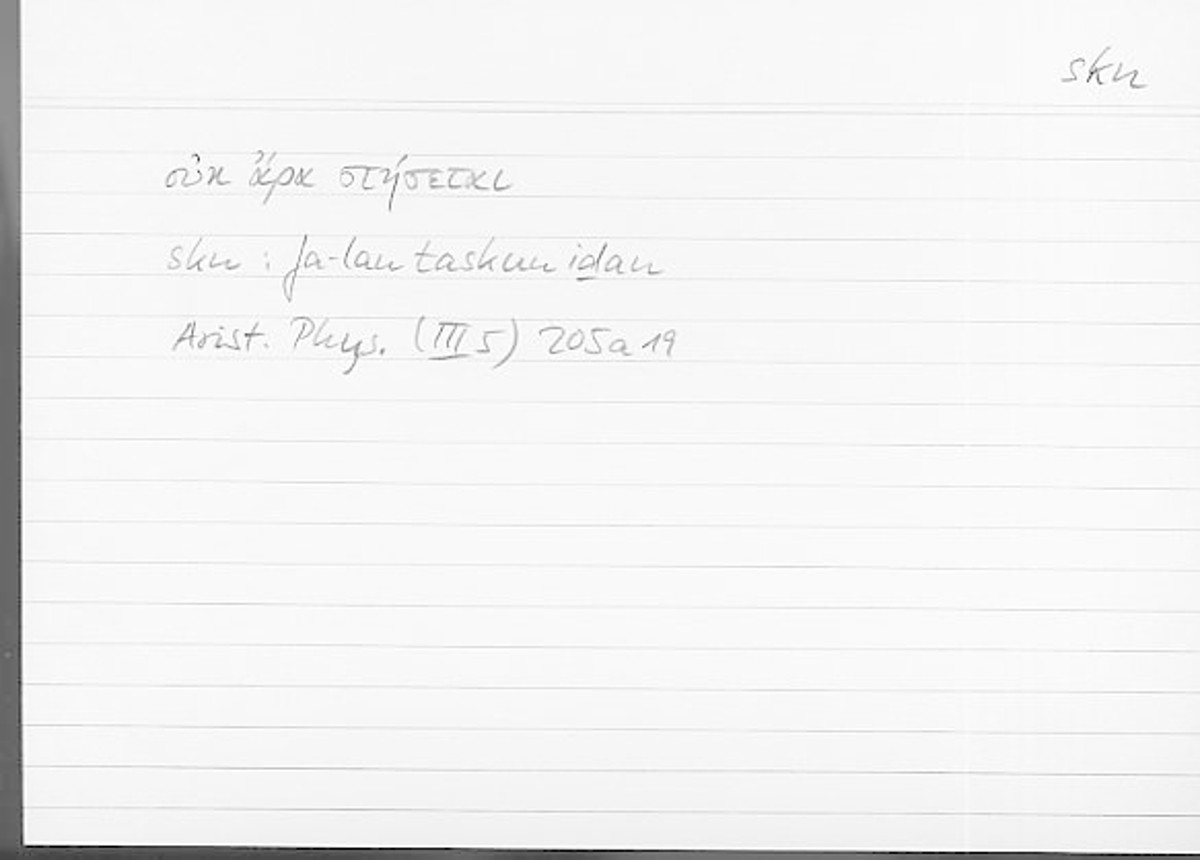 skn
οὐκ ἄρα στήσεται
skn : fa-lan taskun idan
Arist. Phys. (III 5) 205a 19